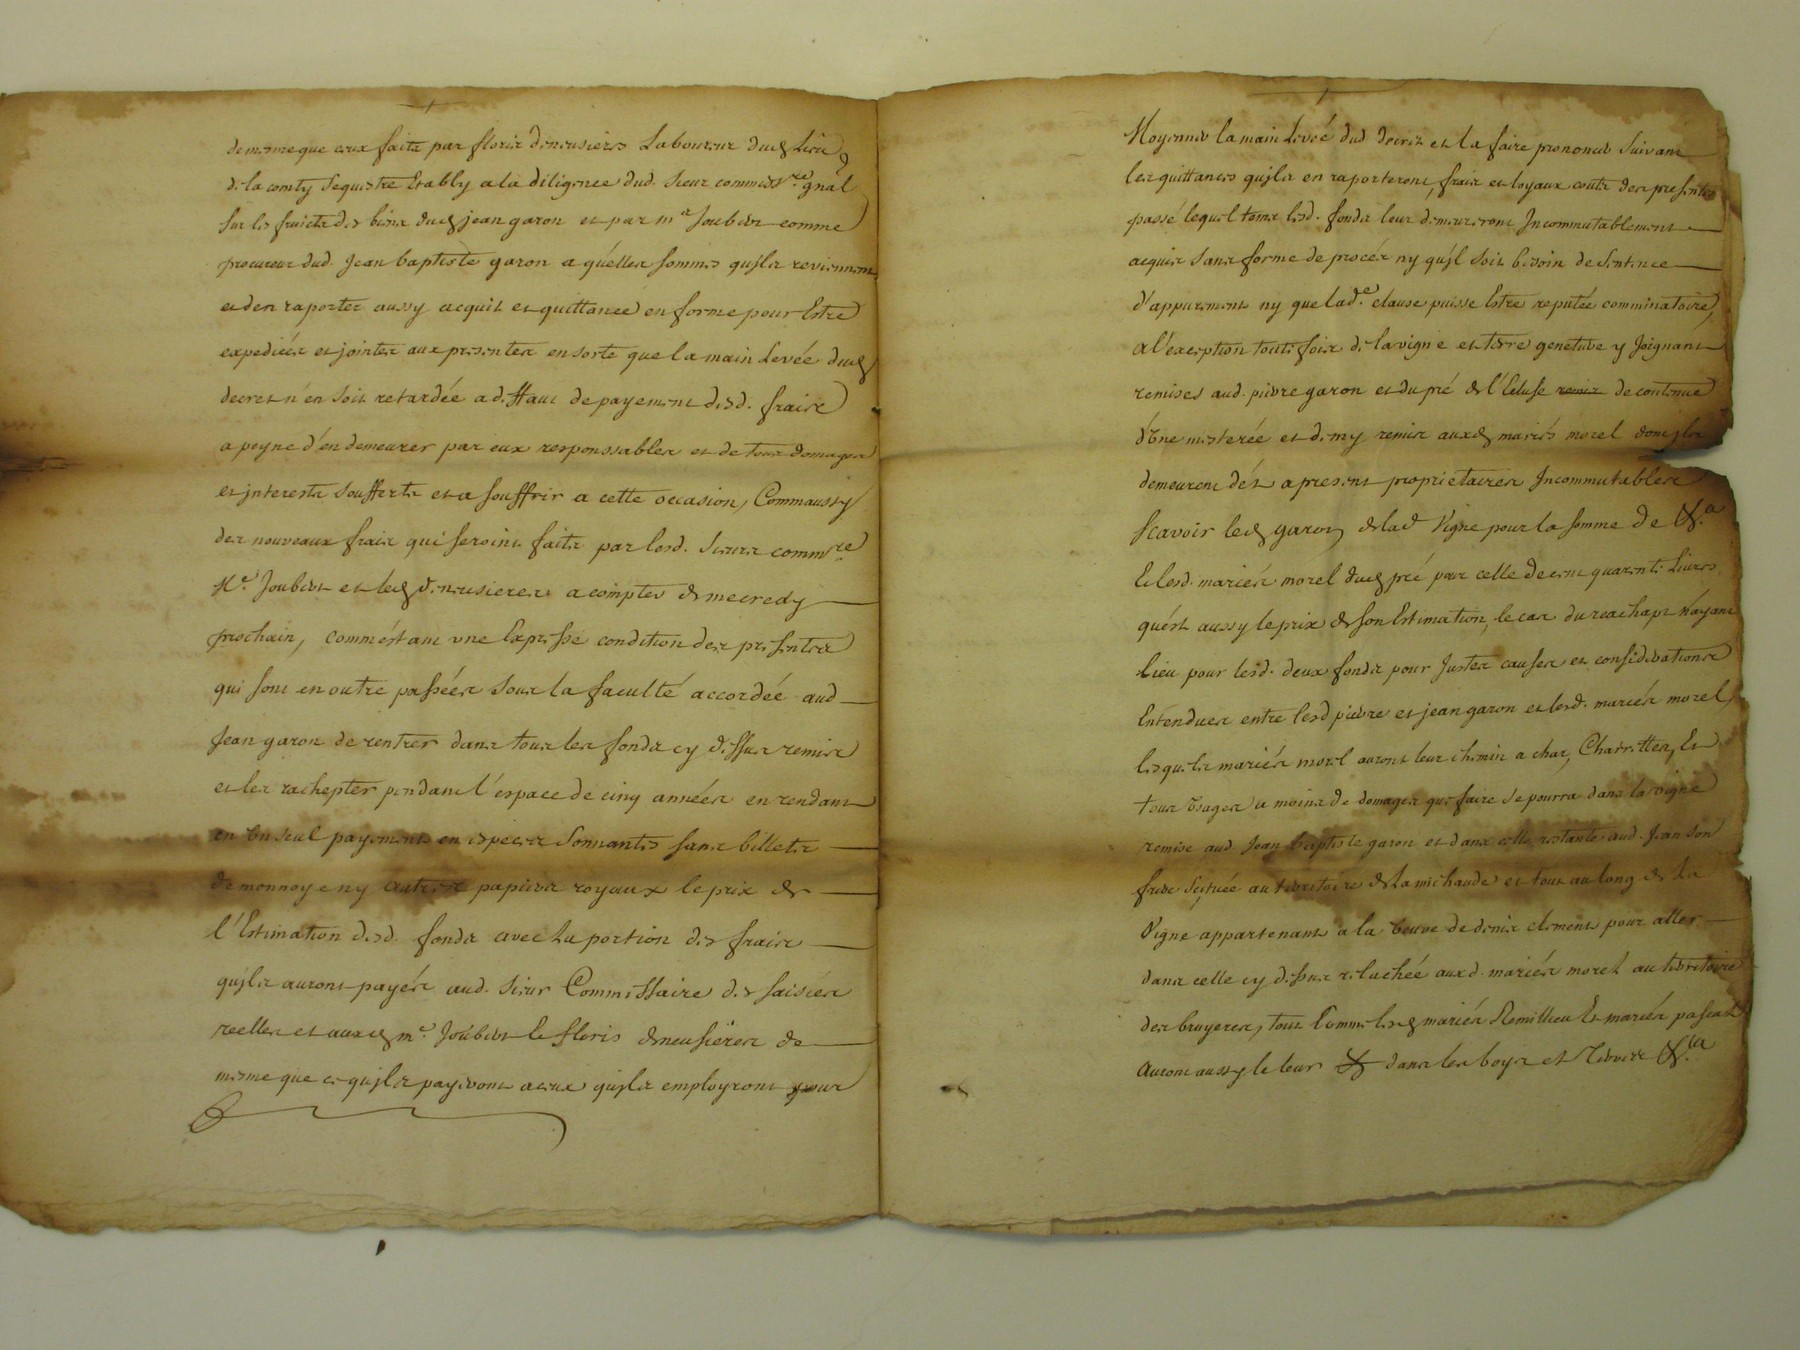 de mesme que ceux faits par floris deneusieres Laboureur dud Lieu
de la comty sequestre Estably a la diligence dud. sieur commiss.re gnâl
sur les fruicts des biens dud jean garon et par m.e Joubert comme
procureur dud. Jean baptiste garon a quélles sommes quils reviennent
et den raporter aussy acquit et quittance en forme pour Estre
expediées et jointes aux presentes en sorte que la main Levée dud
decret n'en soit retardée a deffaut de payement desd. frais
a peyne d'en demeurer par eux responssables et de tous domages
et jnterests soufferts et a souffrir a cette occasion, Commaussy
des nouveaux frais qui seroint faits par lesd. sieurs comm.re
M.e Joubert et led deneusieres a compter de mecredy
prochain, comméstant une Expresse condition des presentes
qui sont en outre passées sous la faculté accordée aud
Jean garon de rentrer dans tous les fonds cy dessus remis
et les rachepter pendant l'espace de cinq années en rendant
en un seul payement en especes sonnantes sans billets
de monnoye ny autres papiers royaux le prix de
l'Estimation desd. fonds avec La portion des frais
quils auront payés aud. sieur Commissaire des saisies
reelles et auxd m.e Joubert le floris deneusieres de
mesme que ce quils payeront a ceux quils employront pour
Moyenner la main Levée dud decret et la faire prononcer suivant
les quittances quils en raporteront, frais et loyaux couts des presentes
passé lequel tems lesd. fonds leur demeureront Incommutablement
acquis sans forme de procés ny quil soit besoin de sentence
d'appurement ny que lad.e clause puisse Estre reputée comminatoire,
a l'exception toutefois de la vigne et terre genetine y Joignant
remises aud. pierre garon et du pré de l'Ecluse de contenue
d'une mesterée et demy remis auxd mariés morel dont ils
demeurent dés a present proprietaires Incommutables
scavoir led garon de lad Vigne pour la somme de
Et lesd. mariés morel dud pré pour celle de cent quarente Livres
quést aussy le prix de son Estimation, le cas du reachapt n'ayant
lieu pour lesd. deux fonds pour Justes causes et considerations
Entendues entre lesd pierre et jean garon et lesd. mariés morel,
lesquels mariés morel auront leur chemin a char, Charrettes, Et
tous usages a moins de domages que faire se pourra dans la vigne
remise aud Jean baptiste garon et dans celle restante aud. Jean son
frere scituée au territoire de La michaude et tout au long de La
Vigne appartenant a la veuve de denis clement pour aller
dans celle cy dessus relachée auxd. mariés morel au territoire
des bruyeres, tout Comme lesd mariés Remillieu Et mariés pascal
Auront aussy le leur dans les boys et Terres